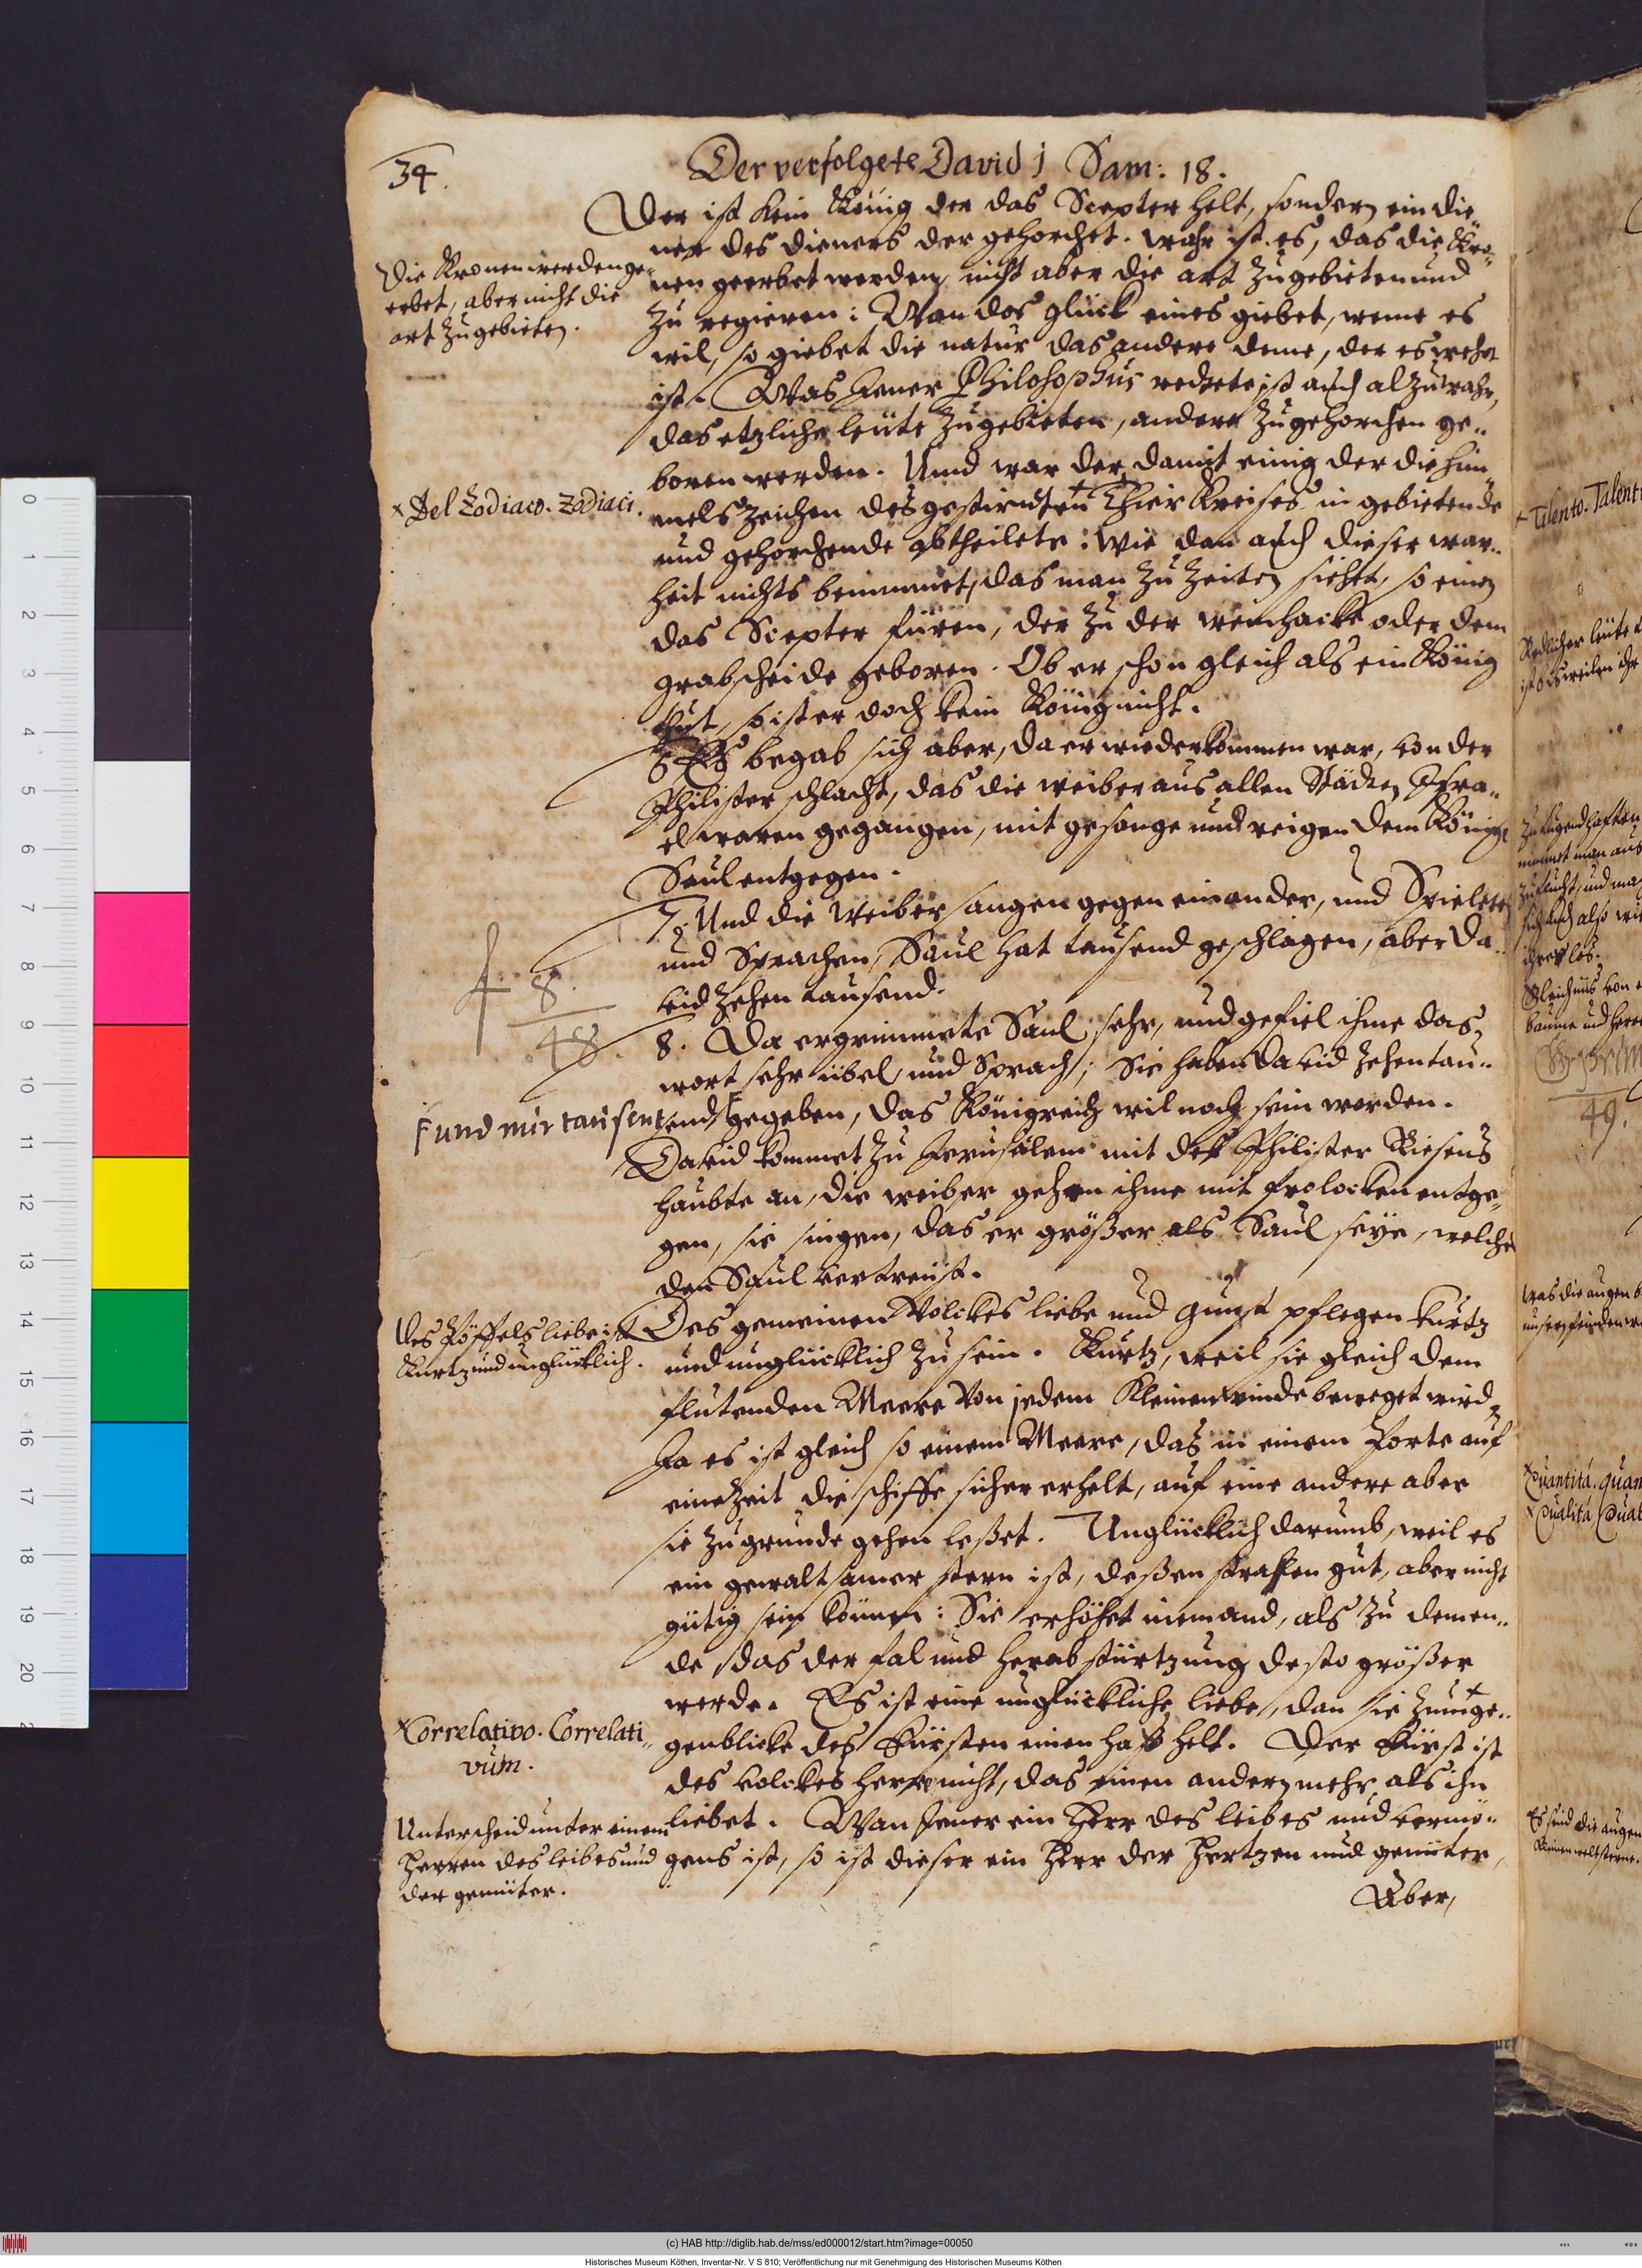 34.
Der verfolgete David 1 Sam: 18.
Der ist kein König der das Scepter helt, sondern ein die„
ner des dieners der gehorchet. wahr ist es, das die Kro„
nen geerbet werden, nicht aber die art zugebieten und
zu regieren: Wan das glück eines giebet, weme es
wil, so giebet die natur das andere deme, der es wehrt
ist. Was Jener Philosophus redete ist auch alzuwahr,
das etzliche leüte zugebieten, andere zugehorchen ge„
boren werden. Unnd war der damit einig der die him„
mels zeichen des gestirnten + Thier Kreises in gebietende
und gehorchende abtheilete: Wie dan auch dieser war„
heit nichts benimmet, das man zu zeiten siehet, so einen
das Scepter füren, der zu der weinhacke oder dem
grabscheide geboren. Ob er schon gleich als ein König
thut, so ist er doch kein König nicht.
6 Es begab sich aber, da er wiederkommen war, von der
Philister schlacht, das die weiber aus allen Städten Isra„
el waren gegangen, mit gesange und reigen dem Könige
Saul entgegen.
7. Und die Weiber sangen gegen einander, und Spieleten
und Sprachen, Saul hat tausend geschlagen, aber Da„
vid zehen tausend.
8. Da ergrimmete Saul sehr, und gefiel ihme das
wort sehr übel, und Sprach; Sie haben David zehentau„
send, gegeben, das Königreich wil noch sein werden.
David kommet zu Jerusalem mit des Philister Riesens
haubte an, die weiber gehen ihme mit frolocken entge„
gen, sie singen, das er größer als Saul seye, welche
den Saul verdreüst.
Des gemeinen Volckes liebe und gunst pflegen kurtz
und unglücklich zu sein. Kurtz, weil sie gleich dem
flutenden Meere Von jedem Kleinen winde beweget wird,
Ja es ist gleich so einem Meere, das in einem Porte auf
eine Zeit die schiffe sicher erhelt, auf eine andere aber
sie zugrunde gehen leßet. Unglücklich darumb, weil es
ein gewaltsamer stern ist, deßen strahlen gut, aber nicht
gütig sein können: Sie erhöhet niemand, als zu dem en„
de, das der fal und herabstürtzung desto größer
werde. Es ist eine unglückliche liebe, dan sie zum + ge„
genblicke des Fürsten einen haß helt. Der Fürst ist
des volckes herr nicht, das einen andern mehr als ihn
liebet. Wan Jener ein Herr des leibes und vermö„
gens ist, so ist dieser ein Herr der Hertzen und gemüter,
Aber,
Die Kronen werden ge„
erbet, aber nicht die
art zugebieten.
+ Del Zodiaco. Zodiaci.
f. 8.
48.
F und mir tausent
Des Pöffels liebe ist
Kurtz und unglücklich.
+ Correlativo. Correlati„
vum.
Unterscheid unter einem
Herren des leibes und
der gemüter.
+ Talento. Talent
Redlicher leüte
Zu tugendhaften
nimmet man aus
zuflucht, und ma
ihrer los.
Gleichnüs von
baume und
49.
Was die augen b
unsern feinden
+ Quantitá. quan
+ Qualitá, Qual
Es sind die augen
0 1 2 3 4 5 6 7 8 9 10 11 12 13 14 15 16 17 18 19 20 2
(c) HAB http://diglib.hab.de/mss/ed000012/start.htm?image=00050
Historisches Museum Köthen, Inventar-Nr. V S 810; Veröffentlichung nur mit Genehmigung des Historischen Museums Köthen